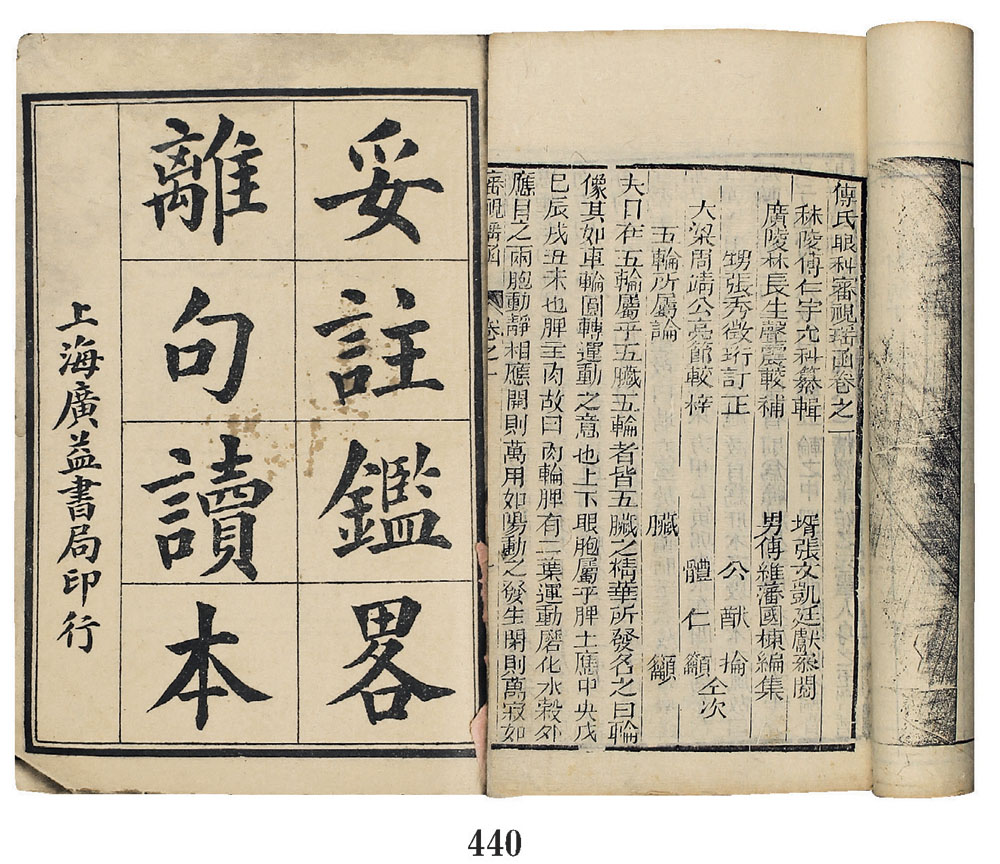 傅氏眼科審視瑤函卷之一
秣陵傅仁宇允科纂輯 壻張文凱廷獻叅閱
廣陵林長生馨嚴較補 男傅維藩國棟編集
甥張秀徵珩訂正 公猷掄
大梁周靖公亮節較梓 體仁籲 仝次
五輪所屬論 臟 籲
夫目在五輪屬乎五臟五輪者皆五臟之精華所發名之曰輪
像其如車輪圓轉運動之意也上下眼胞屬乎脾土應中央戊
巳辰戌丑未也脾主肉故曰肉輪脾有二葉運動磨化水穀外
應目之兩胞動靜相應開則萬用如陽動之發生閑則萬寂如
審視瑤函 卷之一
妥註鑑畧
離句讀本
上海廣益書局印行
440